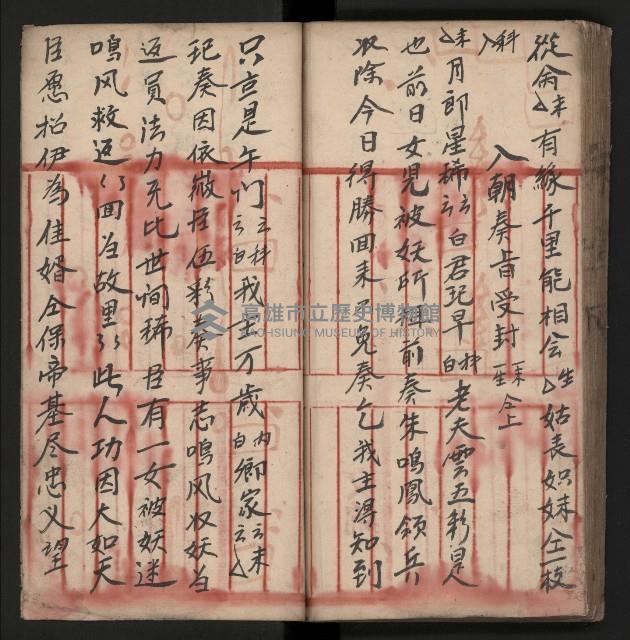 從命 末 有緣千里能相会 生 姑表姐妹仝一枝
入科 入朝奏旨受封 末 生 仝上
末 月郎星稀 云云 白 君記早 科 白 老夫雲五彩是
也前日女児被妖所 前奏朱鳴鳳領兵
收除今日得勝回来 免奏乞我主得知到
只言是午们 云云 科 白 我主万歳 内 白 卿家 云云 末
記奏因依微臣伍彩奏事 鳴风收妖為
返員法力无比世间稀臣有一女被妖迷
鳴风救返 回为故里 此人功因大如天
臣愿招伊為佳婚仝保帝基尽忠义望
高雄市立歷史博物館
KAOHSIUNG MUSEUM OF HISTORY